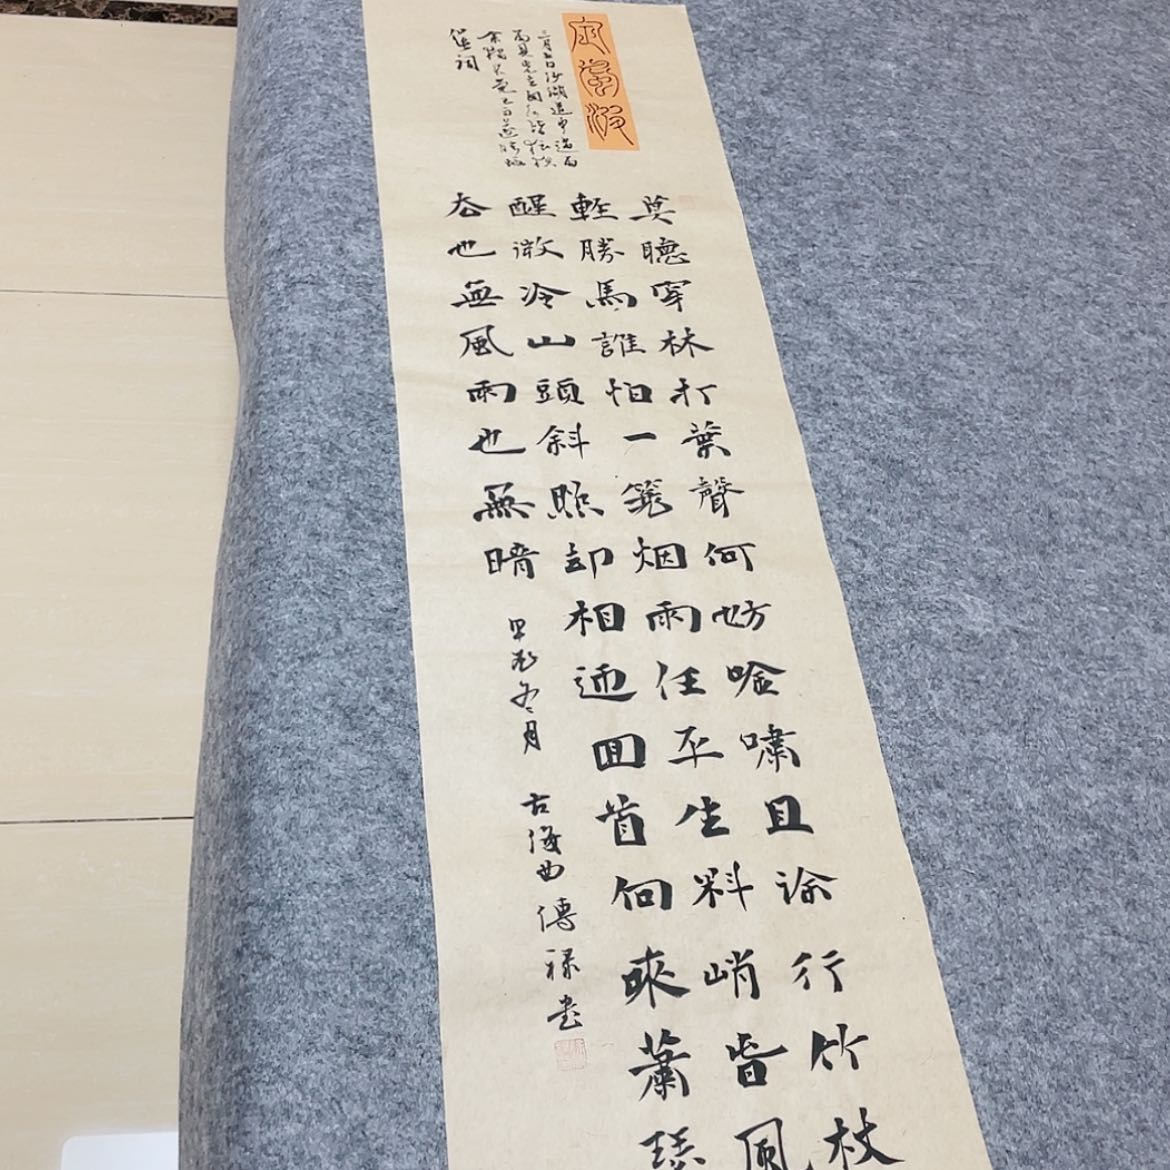 定風波
三月五日沙湖道中遇雨
雨具先去同行皆狼狽
余獨不覺已而遂晴故
作詞
莫聽穿林打葉聲何妨吟嘯且徐行竹杖
輕勝馬誰怕一蓑烟雨任平生料峭春風
醒微冷山頭斜照却相迎回首向來蕭瑟
去也無風雨也無晴
甲辰冬月 古海曲傳祿書